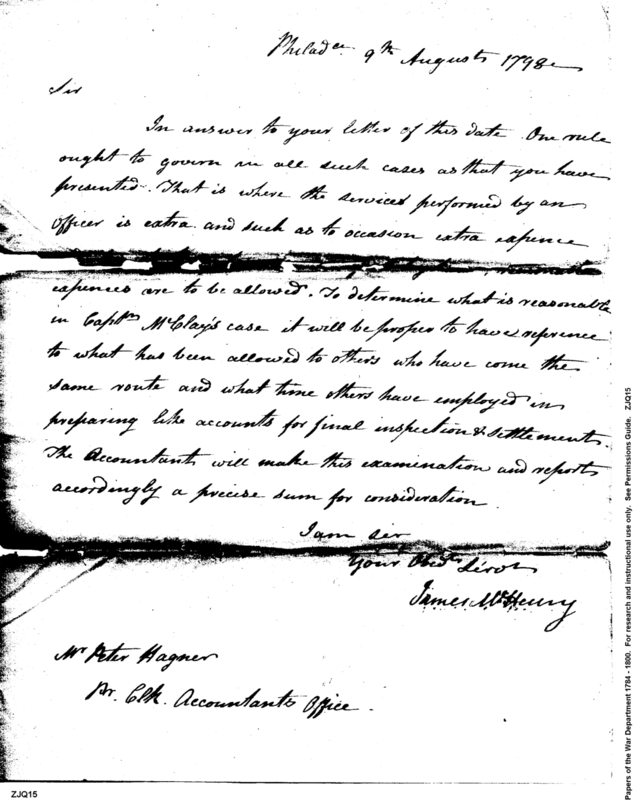 Philada 9th August 1798
Sir
In answer to your letter of this date. One rule
ought to govern in all such cases as that you have
presented. That is where the services performed by an
Officer is extra and such as to occasion extra expence
reasonable
expences are to be allowed. To determine what is reasonable
in Captn McClay's case it will be proper to have reference
to what has been allowed to others who have come the
same route and what time others have employed in
preparing like accounts for final inspection & settlement.
The Accountant will make this examination and report
accordingly a precise sum for consideration
I am sir
Your Obedt Servt
James McHenry
Mr Peter Hagner
Pr. Clk. Accountants Office.
ZJQ15
Papers of the War Department 1784 - 1800. For research and instructional use only. See Permissions Guide. ZJQ15